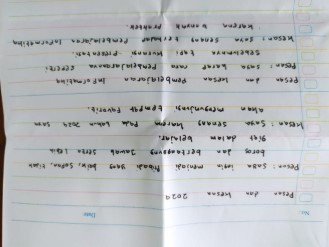 No:
Date:
Pesan dan Kesan 2024
Pesan: Saya ingin menjadi Pribadi yang baik, Sopan, tidak
boros dan bertanggung Jawab Serta lebih
giat dalam belajar.
Kesan: Saya Senang karena Pada tahun 2024 Saya
akan mengunjungi tempat Favorit.
Pesan dan Kesan Pembelajaran Informatika
Pesan: Saran Saya
Pembelajaran
Sebelumnya
Presentasi.
Kesan: Saya Senang belajar Pembelajaran Informatika
Karena banyak Praktek.